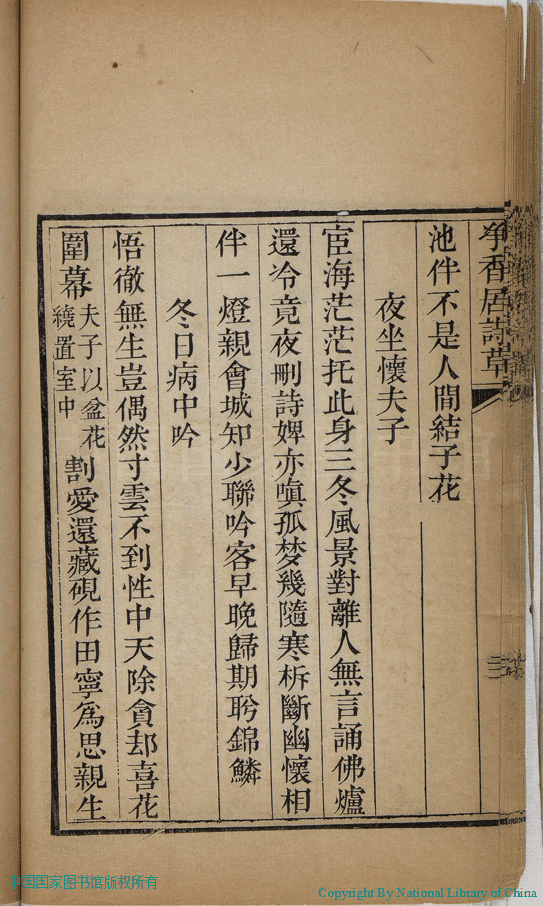 爭香居詩草
池伴不是人間結子花
夜坐懷夫子
宦海茫茫托此身三冬風景對離人無言誦佛爐
還冷竟夜刪詩婢亦嗔孤梦幾隨寒柝斷幽懷相
伴一燈親會城知少聯吟客早晚歸期聆錦鱗
冬日病中吟
悟徹無生豈偶然寸雲不到性中天除貪却喜花
圍幕夫子以盆花繞置室中割愛還藏硯作田寧爲思親生
中国国家图书馆版权所有
Copyright By National Library of China